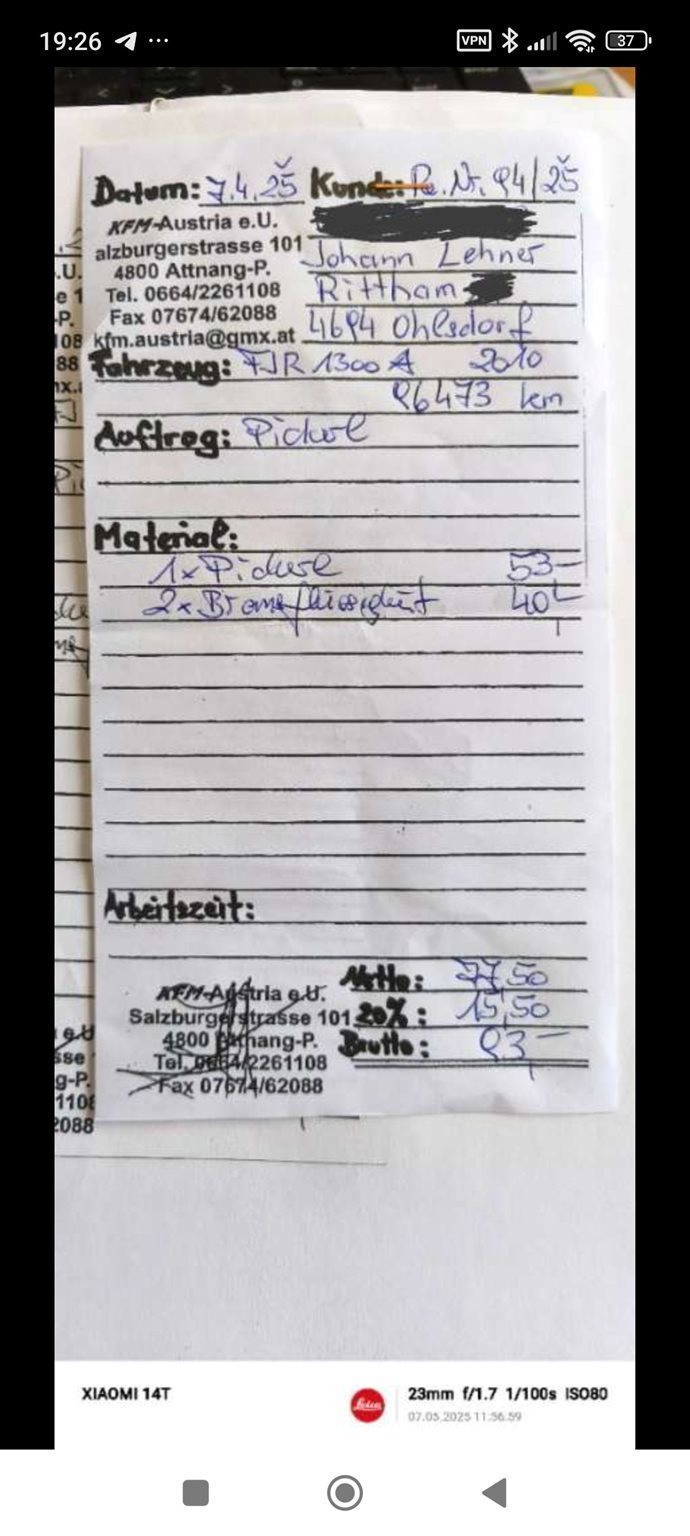 19:26 ... VPN 37
Datum: 7.4.25 Kunde: Re. Nr. 94/25
KFM-Austria e.U.
alzburgerstrasse 101
4800 Attnang-P.
Tel. 0664/2261108
Fax 07674/62088
kfm.austria@gmx.at
Johann Lehner
Rittham
4694 Ohlsdorf
Fahrzeug: FJR 1300 A 2010
96473 km
Auftrag: Pickerl
Material:
1x Pickerl 53-
2x Bremsflüssigkeit 40-
Arbeitszeit:
KFM-Austria e.U.
Salzburgerstrasse 101
4800 Attnang-P.
Tel. 0664/2261108
Fax 07674/62088
Netto: 77,50
20%: 15,50
Brutto: 93-
.U.
e 1
-P.
108
88
nx.a
e.U
sse
g-P.
1108
2088
XIAOMI 14T
Leica
23mm f/1.7 1/100s ISO80
07.05.2025 11:56:59